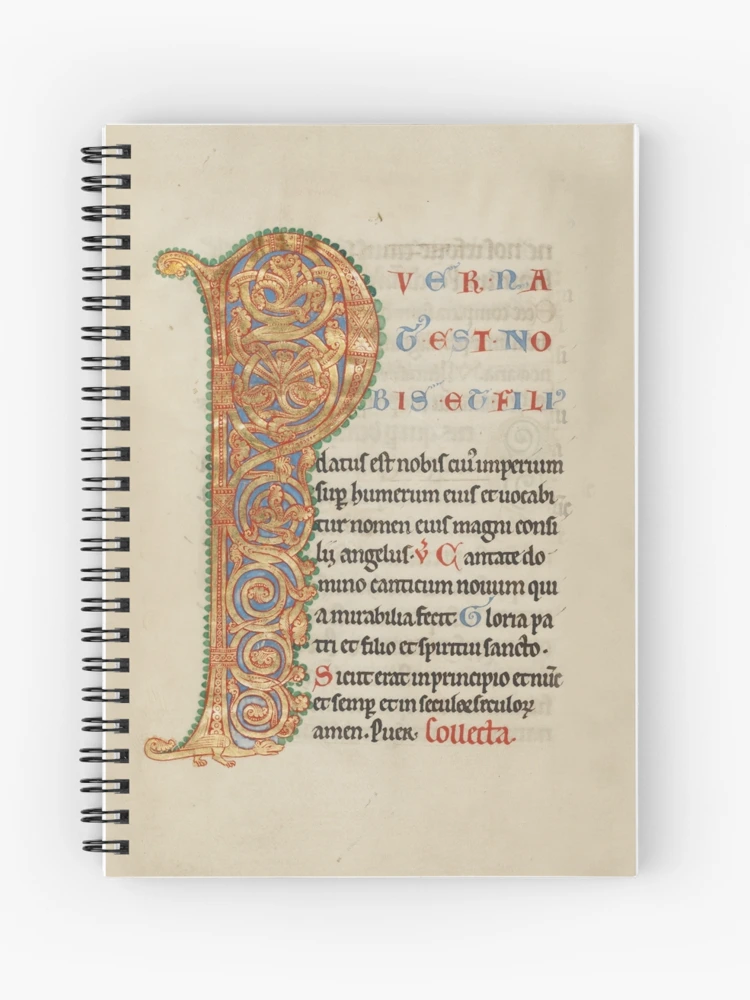 PUER·NA
T' EST·NO
BIS·ET·FILI'
datus est nobis cui' imperium
sup̱ humerum eius et uocabi
tur nomen eius magni consi
lij angelus· v̄ Cantate do
mino canticum nouum qui
a mirabilia fecit· Gloria pa
tri et filio et spiritui sancto·
Sicut erat in principio et nūc
et semp̱ et in seculoꝝ seculoꝝ
amen· Puer· Collecta·